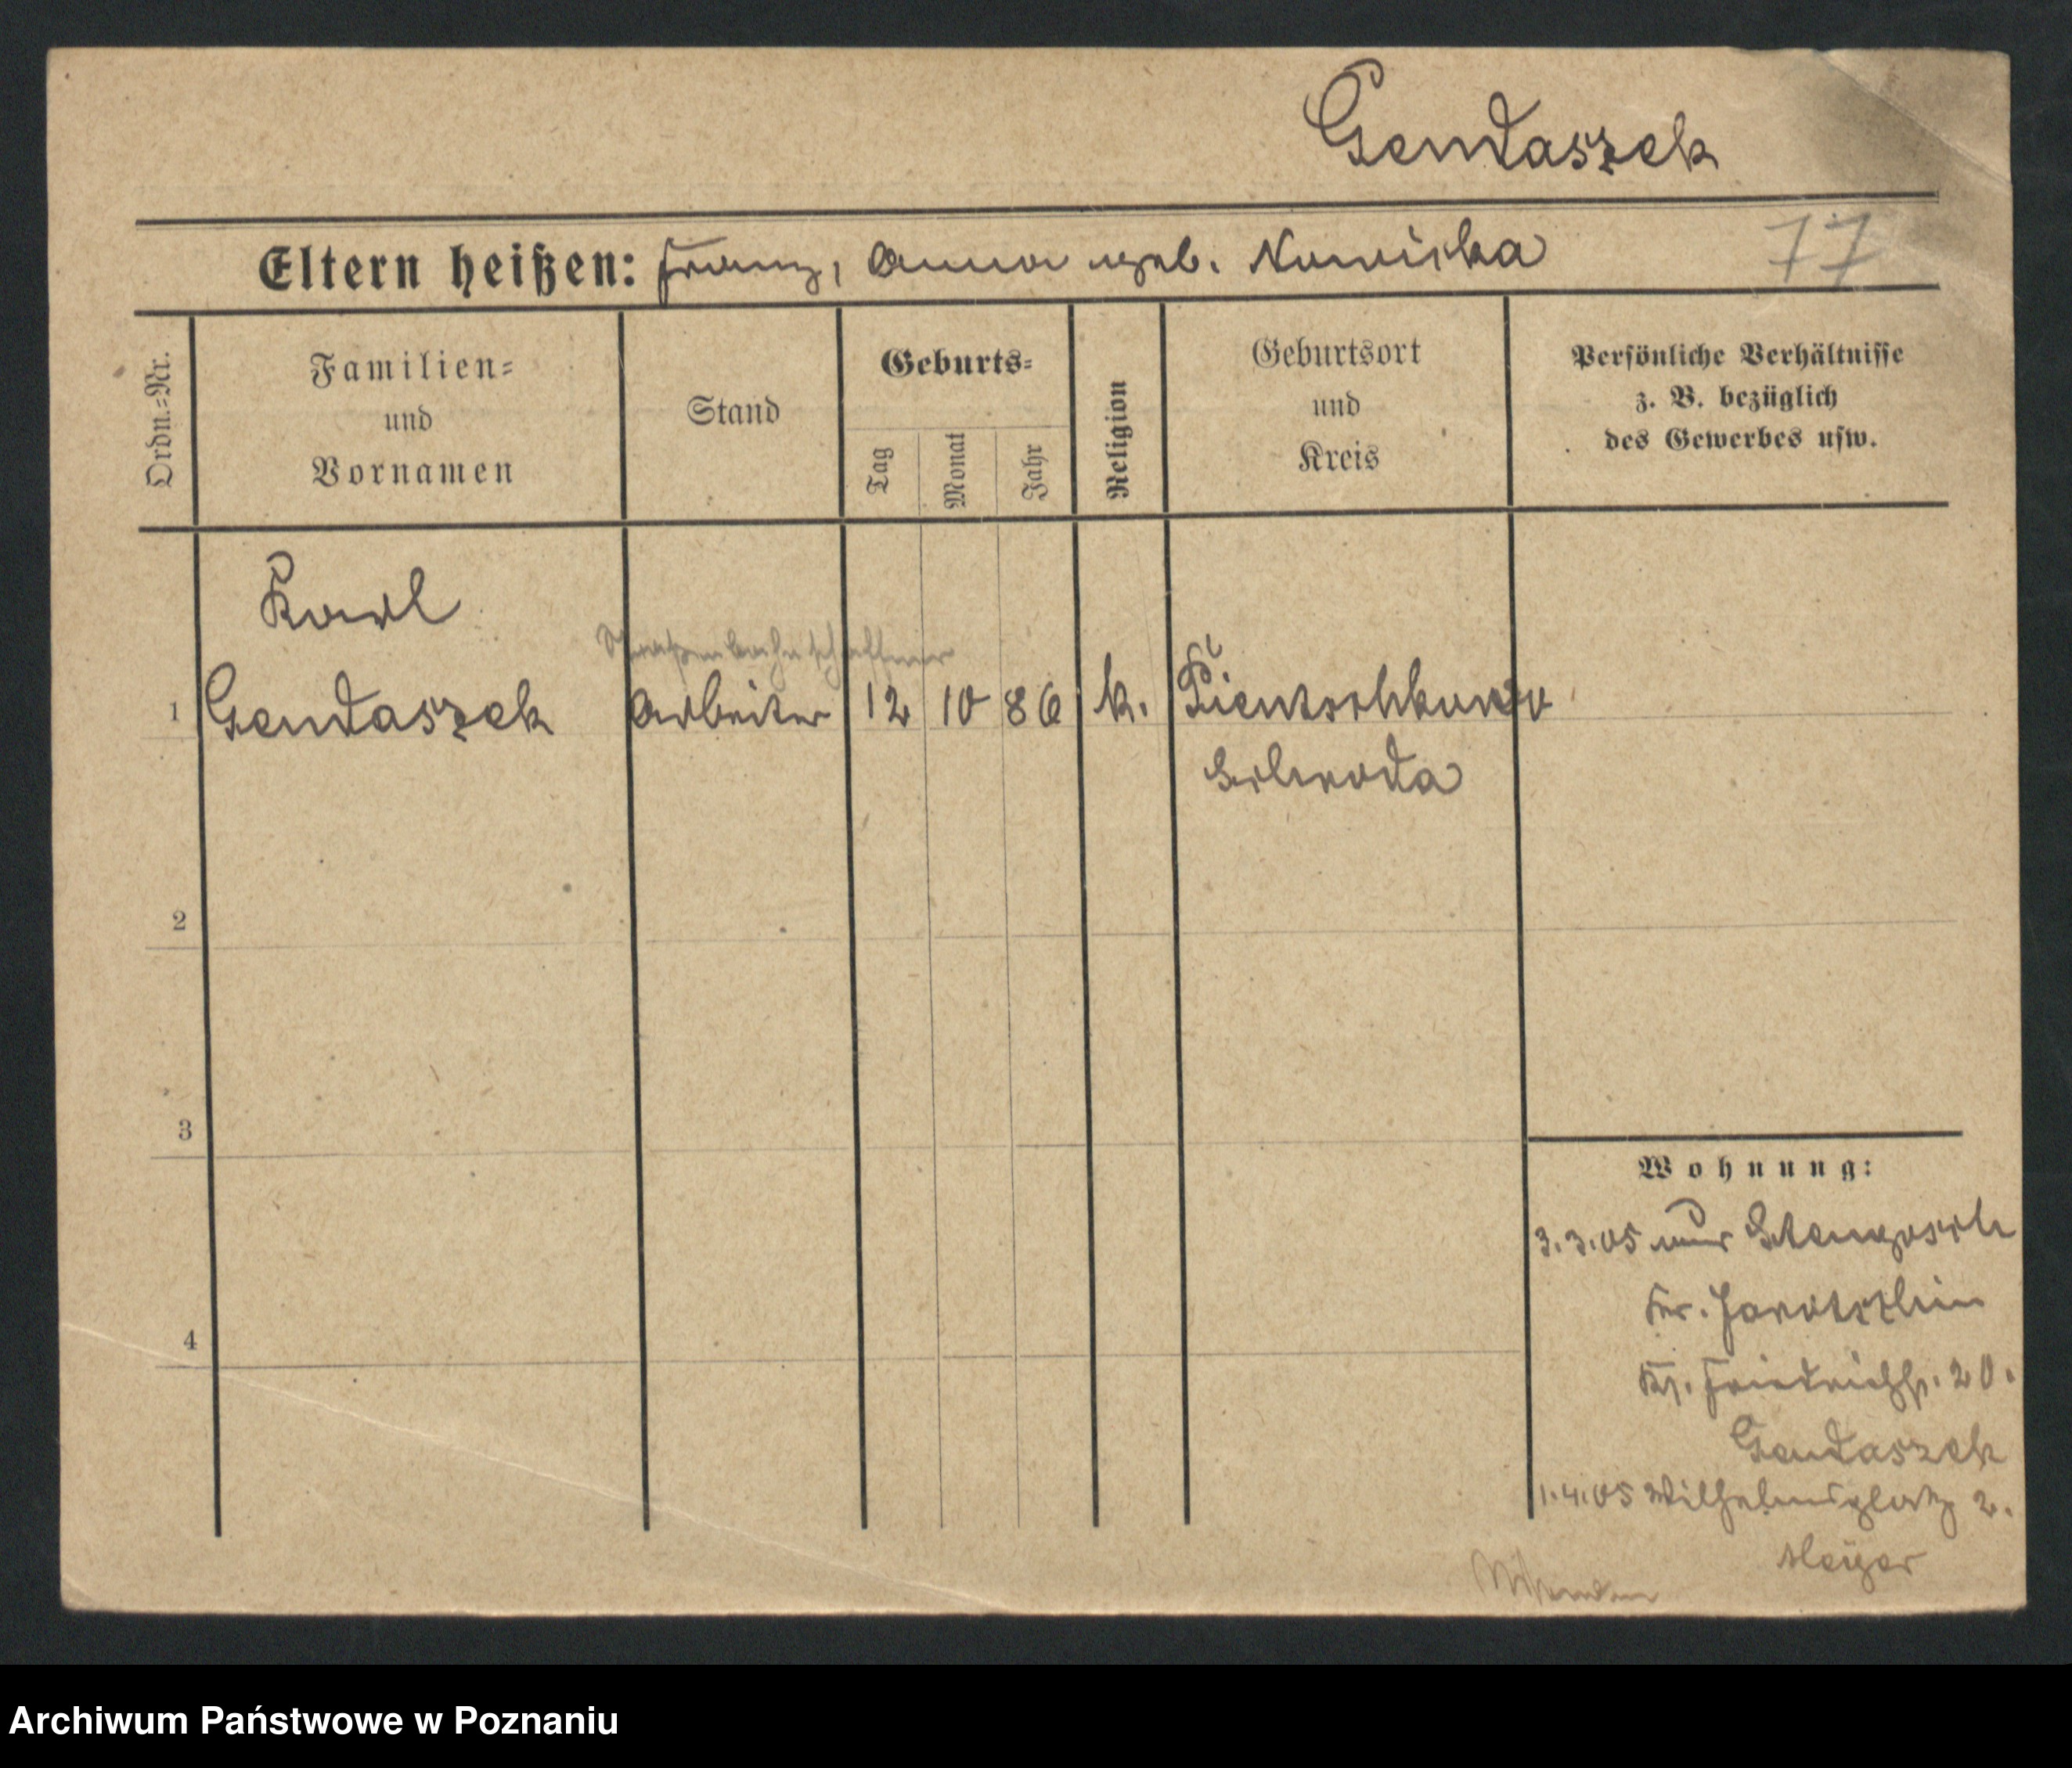 Gendaszek
Eltern heißen: Franz, Anna geb. Nowicka
77
Ordn.=Nr.
Familien=
und
Vornamen
Stand
Geburts=
Tag
Monat
Jahr
Religion
Geburtsort
und
Kreis
Persönliche Verhältnisse
z. B. bezüglich
des Gewerbes usw.
Karl
Straßenbahnschaffner
1 Gendaszek Arbeiter 12 10 86 k. Pientschkowo
Schroda
2
3
4
Wohnung:
3.3.05 aus
Kr. Jarotschin
Friedrichst. 20.
Gendaszek
1.4.05 Wilhelmsplatz 2.
Meyer
Archiwum Państwowe w Poznaniu